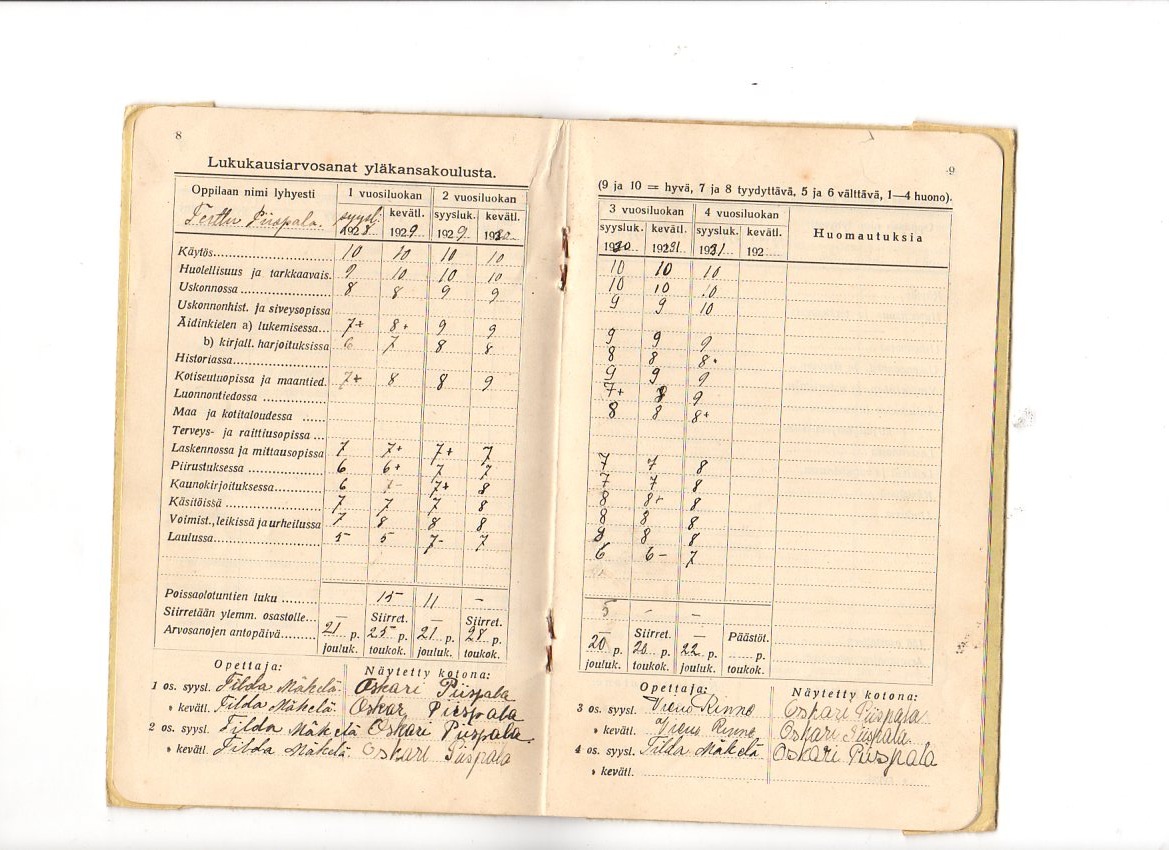 8
Lukukausiarvosanat yläkansakoulusta.
Oppilaan nimi lyhyesti 1 vuosiluokan 2 vuosiluokan
Terttu Piispala. syysl. kevätl. syysluk. kevätl.
1928 1929 1929 1930
Käytös 10 10 10 10
Huolellisuus ja tarkkaavais. 9 10 10 10
Uskonnossa 8 8 9 9
Uskonnonhist. ja siveysopissa
Äidinkielen a) lukemisessa 7+ 8+ 9 9
b) kirjall. harjoituksissa 6 7 8 8
Historiassa
Kotiseutuopissa ja maantied. 7+ 8 8 9
Luonnontiedossa
Maa ja kotitaloudessa
Terveys- ja raittiusopissa
Laskennossa ja mittausopissa 7 7+ 7+ 7
Piirustuksessa 6 6+ 7 7
Kaunokirjoituksessa 6 7- 7+ 8
Käsitöissä 7 7 7 8
Voimist., leikissä ja urheilussa 7 8 8 8
Laulussa 5 5 7- 7
Poissaolotuntien luku 15 11 -
Siirretään ylemm. osastolle — Siirret. — Siirret.
Arvosanojen antopäivä 21 p. 25 p. 21 p. 28 p.
jouluk. toukok. jouluk. toukok.
Opettaja: Näytetty kotona:
1 os. syysl. Tilda Mäkelä. Oskari Piispala
» kevätl. Tilda Mäkelä. Oskar Piispala
2 os. syysl. Tilda Mäkelä Oskari Piispala
» kevätl. Tilda Mäkelä. Oskari Piispala
9
(9 ja 10 = hyvä, 7 ja 8 tyydyttävä, 5 ja 6 välttävä, 1—4 huono).
3 vuosiluokan 4 vuosiluokan Huomautuksia
syysluk. kevätl. syysluk. kevätl.
1930 1931 1931 192
10 10 10
10 10 10
9 9 10
9 9 9
8 8 8+
9 9 9
7+ 8 9
8 8 8+
7 7 8
7 7 8
8 8+ 8
8 8 8
8 8 8
6 6- 7
5 - -
— Siirret. — Päästöt.
20 p. 20 p. 22 p. p.
jouluk. toukok. jouluk. toukok.
Opettaja: Näytetty kotona:
3 os. syysl. Vieno Rinne Oskari Piispala
» kevätl. Vieno Rinne Oskari Piispala.
4 os. syysl. Tilda Mäkelä Oskari Piispala
» kevätl.